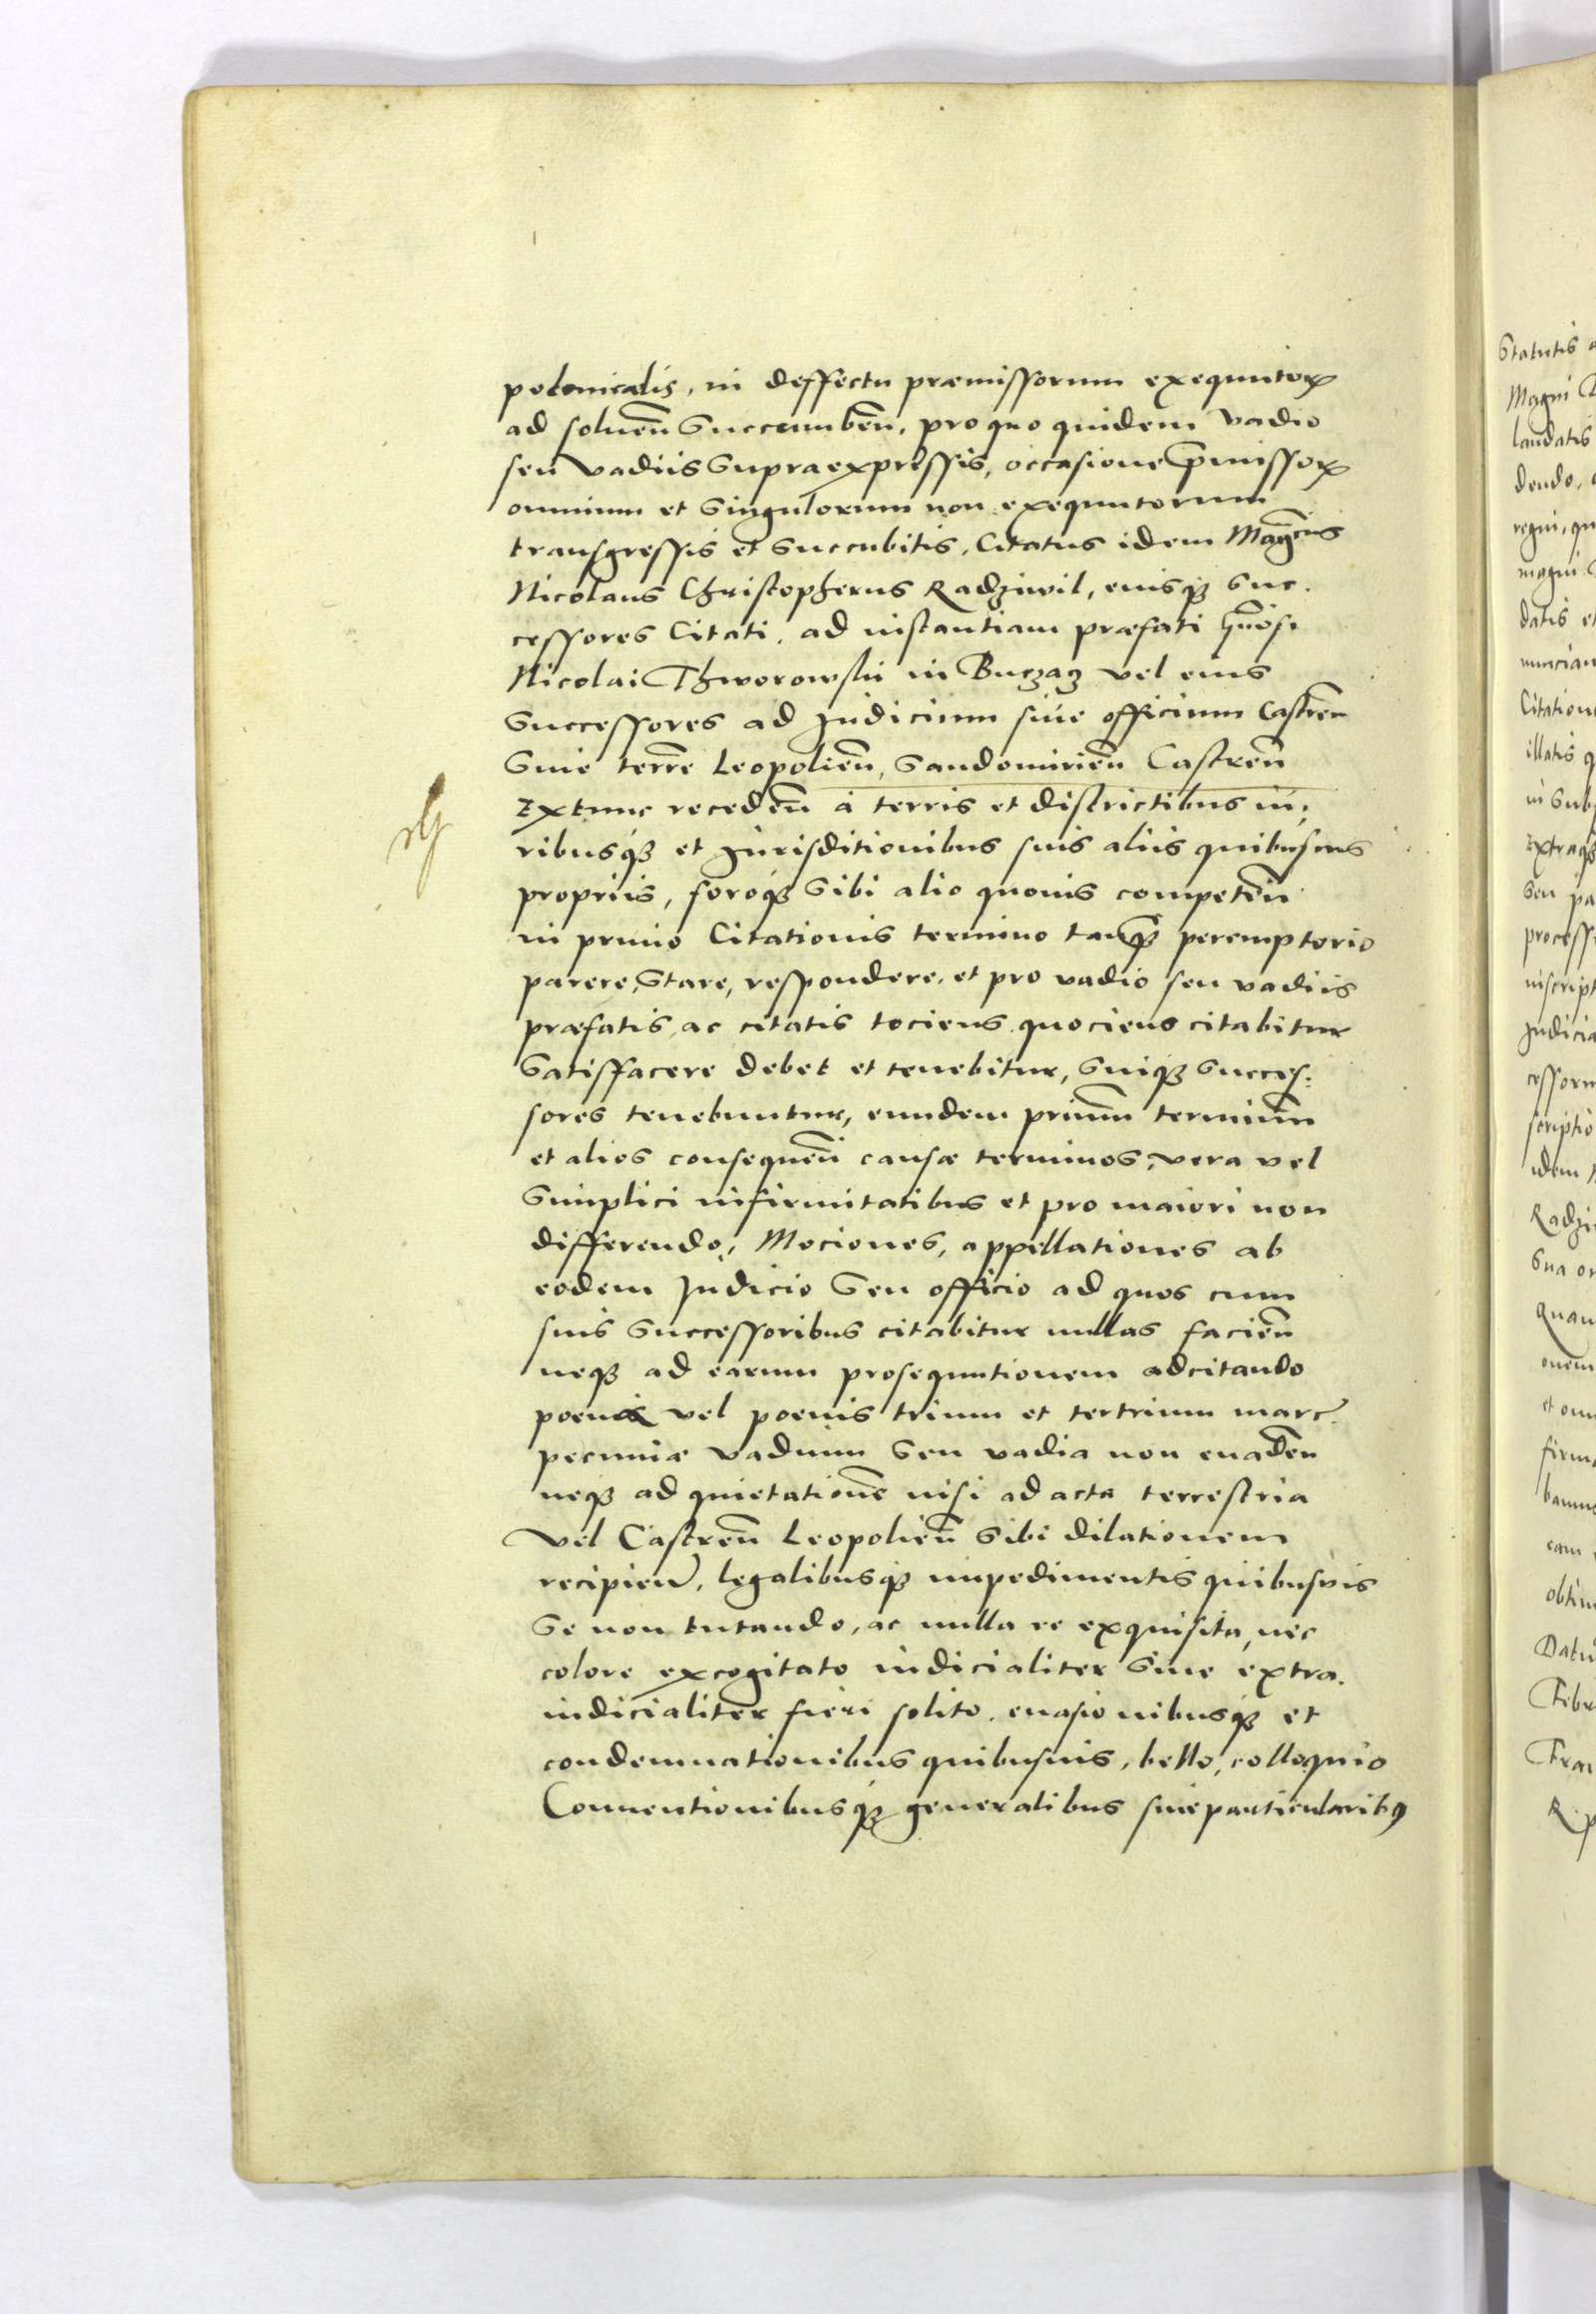 polonicalis, in deffectu præmissorum exequutoꝝ
ad soluen̄ Succumben̄, pro quo quidem vadio
seu vadiis Supra expressis, occasione p̄missoꝝ
omnium et Singulorum non exequutorum
transgressis et Succubitis, Citatus idem Mag̅cus
Nicolaus Christopherus Radziwil, eiusqꝫ Suc.
cessores Citati, ad instantiam præfati gn̄osi
Nicolai Thworowski in Buczacz vel eius
Successores ad Judicium siue officium Castren̄
Siue terræ Leopolien̄, Sandomirien̄ Castren̄
Extunc receden̄ à terris et districtibus iu,
ribusqꝫ et Jurisditionibus suis aliis quibusuis
propriis, foroqꝫ Sibi alio quouis competen̄
in primo Citationis termino tanqꝫ peremptorio
parere, Stare, respondere, et pro vadio seu vadiis
præfatis, ac citatis tociens quociens citabitur
Satisfacere debet et tenebitur, Suiqꝫ Succes:
sores tenebuntur, eundem primū terminū
et alios consequen̄ causæ terminos, vera vel
Simplici infirmitatibus et pro maiori non
differendo, Mociones, appellationes ab
eodem Judicio Seu officio ad quos cum
suis Successoribus citabitur nullas facien̄
neqꝫ ad earum prosequutionem adcitando
poenas vel poenis trium et tertrium marc.
pecuniæ vadium Seu vadia non euaden̄
neqꝫ ad quietationē nisi ad acta terrestria
vel Castren̄ Leopolien̄ Sibi dilationem
recipien̄, legalibusqꝫ impedimentis quibusuis
Se non tutando, ac nulla re exquisita, nec
colore excogitato iudicialiter Siue extra.
iudicialiter fieri solito, euasionibusqꝫ et
condemnationibus quibusuis, bello, colloquio
Conuentionibusqꝫ generalibus siue particularibꝰ
Statutis
Magni
laudatis
dendo,
regni, qu
magni
datis et
nuncian
Citation
illatis q
in Sub
Extraqꝫ
Seu pa
process
inscript
Judicia
cessoru
scriptio
idem
Radzi
Sua
quan
onem
et om
firm
eam
obtin
Datu